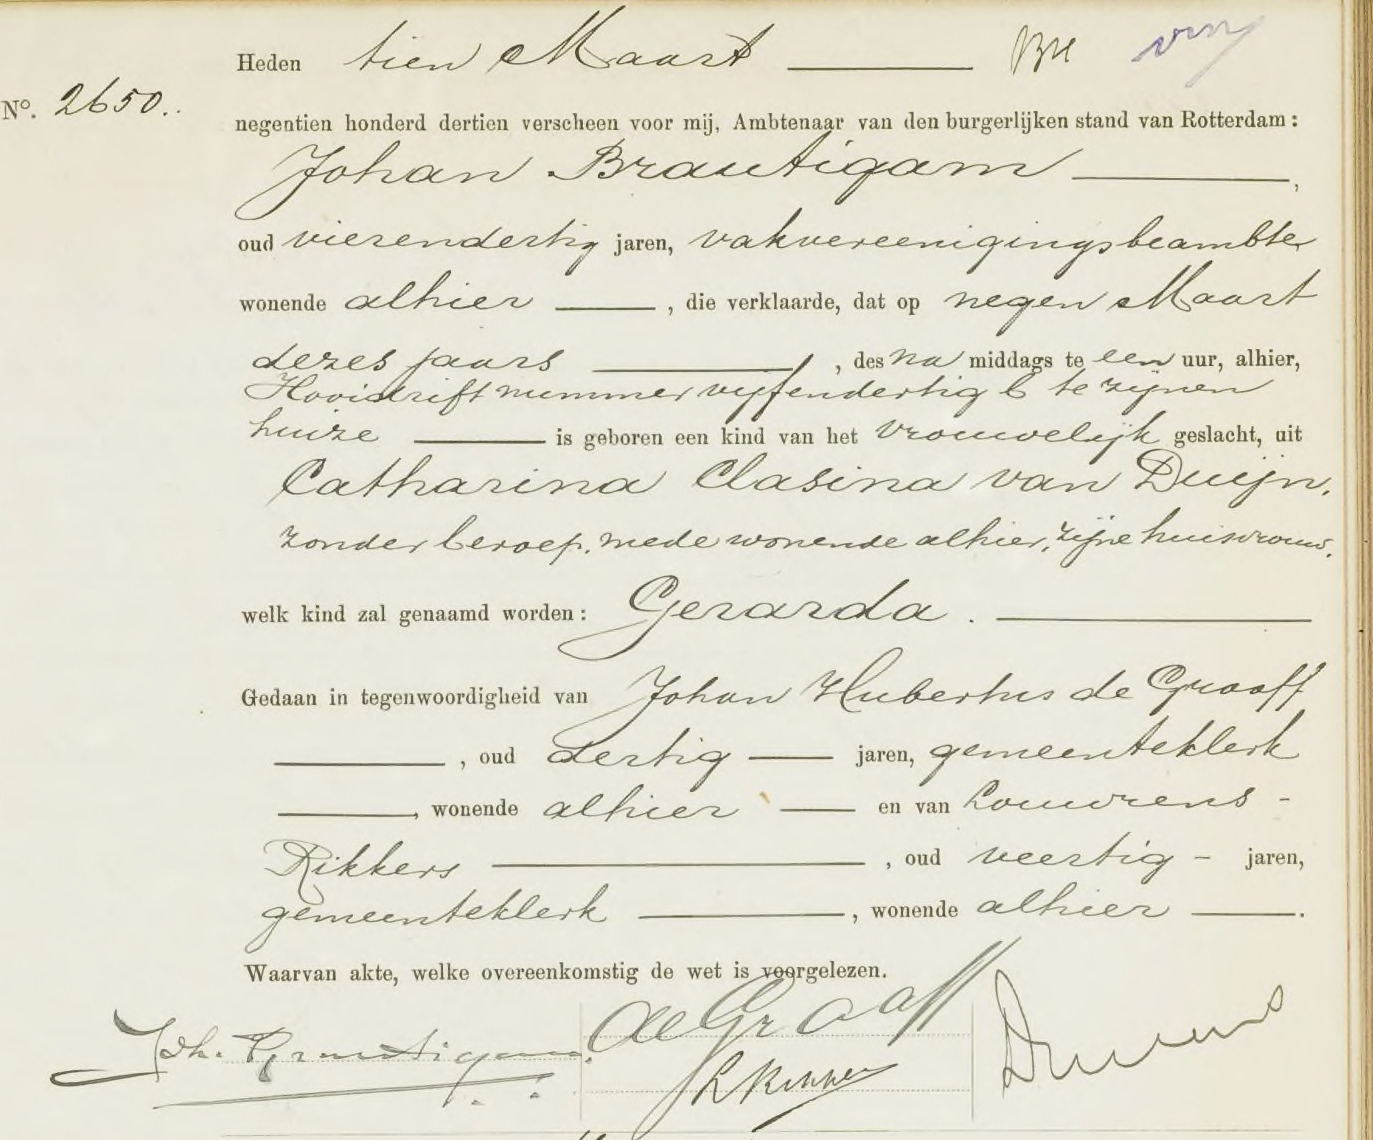 Heden tien Maart
Nº. 2650.
negentien honderd dertien verscheen voor mij, Ambtenaar van den burgerlijken stand van Rotterdam:
Johan Brautigam,
oud vierendertig jaren, vakvereenigingsbeambte
wonende alhier, die verklaarde, dat op negen Maart
dezes jaars, des na middags te een uur, alhier,
Hooidrift nummer vijfendertig b te zijnen
huize is geboren een kind van het vrouwelijk geslacht, uit
Catharina Clasina van Duijn,
zonder beroep, mede wonende alhier, zijne huisvrouw,
welk kind zal genaamd worden: Gerarda.
Gedaan in tegenwoordigheid van Johan Hubertus de Graaff
, oud dertig jaren, gemeenteklerk
, wonende alhier en van Louwrens -
Rikkers, oud veertig - jaren,
gemeenteklerk, wonende alhier.
Waarvan akte, welke overeenkomstig de wet is voorgelezen.
Joh. Brautigam. de Graaff